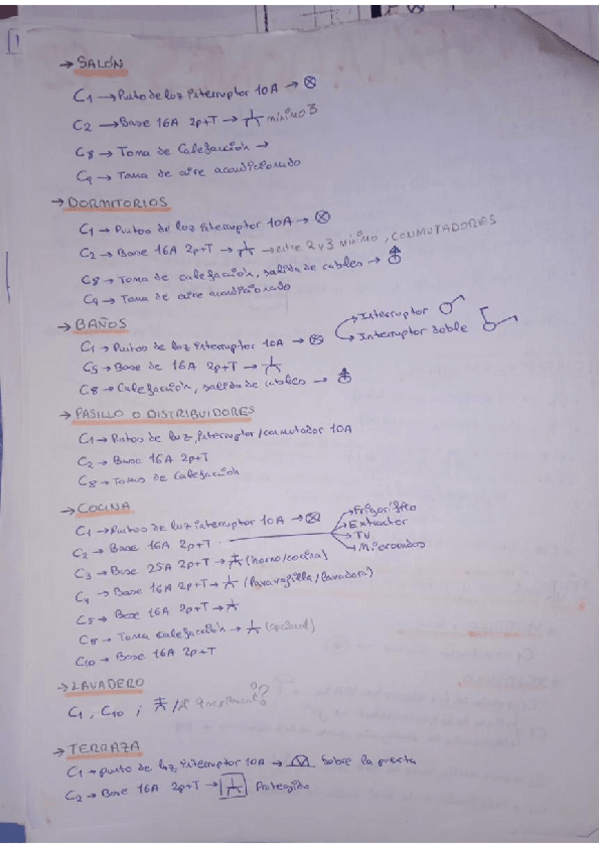 → SALÓN
C1 → Punto de luz Interruptor 10A →
C2 → Base 16A 2p+T → mínimo 3
C8 → Toma de Calefacción →
C9 → Toma de aire acondicionado
→ DORMITORIOS
C1 → Puntos de luz interruptor 10A →
C2 → Base 16A 2p+T → → entre 2 y 3 mínimo, CONMUTADORES
C8 → Toma de calefacción, salida de cables →
C9 → Toma de aire acondicionado
→ BAÑOS
C1 → Puntos de luz Interruptor 10A →
→ Interruptor
→ Interruptor doble
C5 → Base de 16A 2p+T →
C8 → Calefacción, salida de cables →
→ PASILLO O DISTRIBUIDORES
C1 → Puntos de luz, interruptor/conmutador 10A
C2 → Base 16A 2p+T
C8 → Tomas de Calefacción
→ COCINA
C1 → Puntos de luz interruptor 10A →
C2 → Base 16A 2p+T
→ Frigorífico
→ Extractor
→ TV
→ Microondas
C3 → Base 25A 2p+T → (horno/cocina)
C4 → Base 16A 2p+T → (lavavajilla/lavadora)
C5 → Base 16A 2p+T →
C8 → Toma calefacción → (opcional)
C10 → Base 16A 2p+T
→ LAVADERO
C1, C10 ;
→ TERRAZA
C1 → punto de luz, Interruptor 10A → Sobre la puerta
C2 → Base 16A 2p+T → Protegido